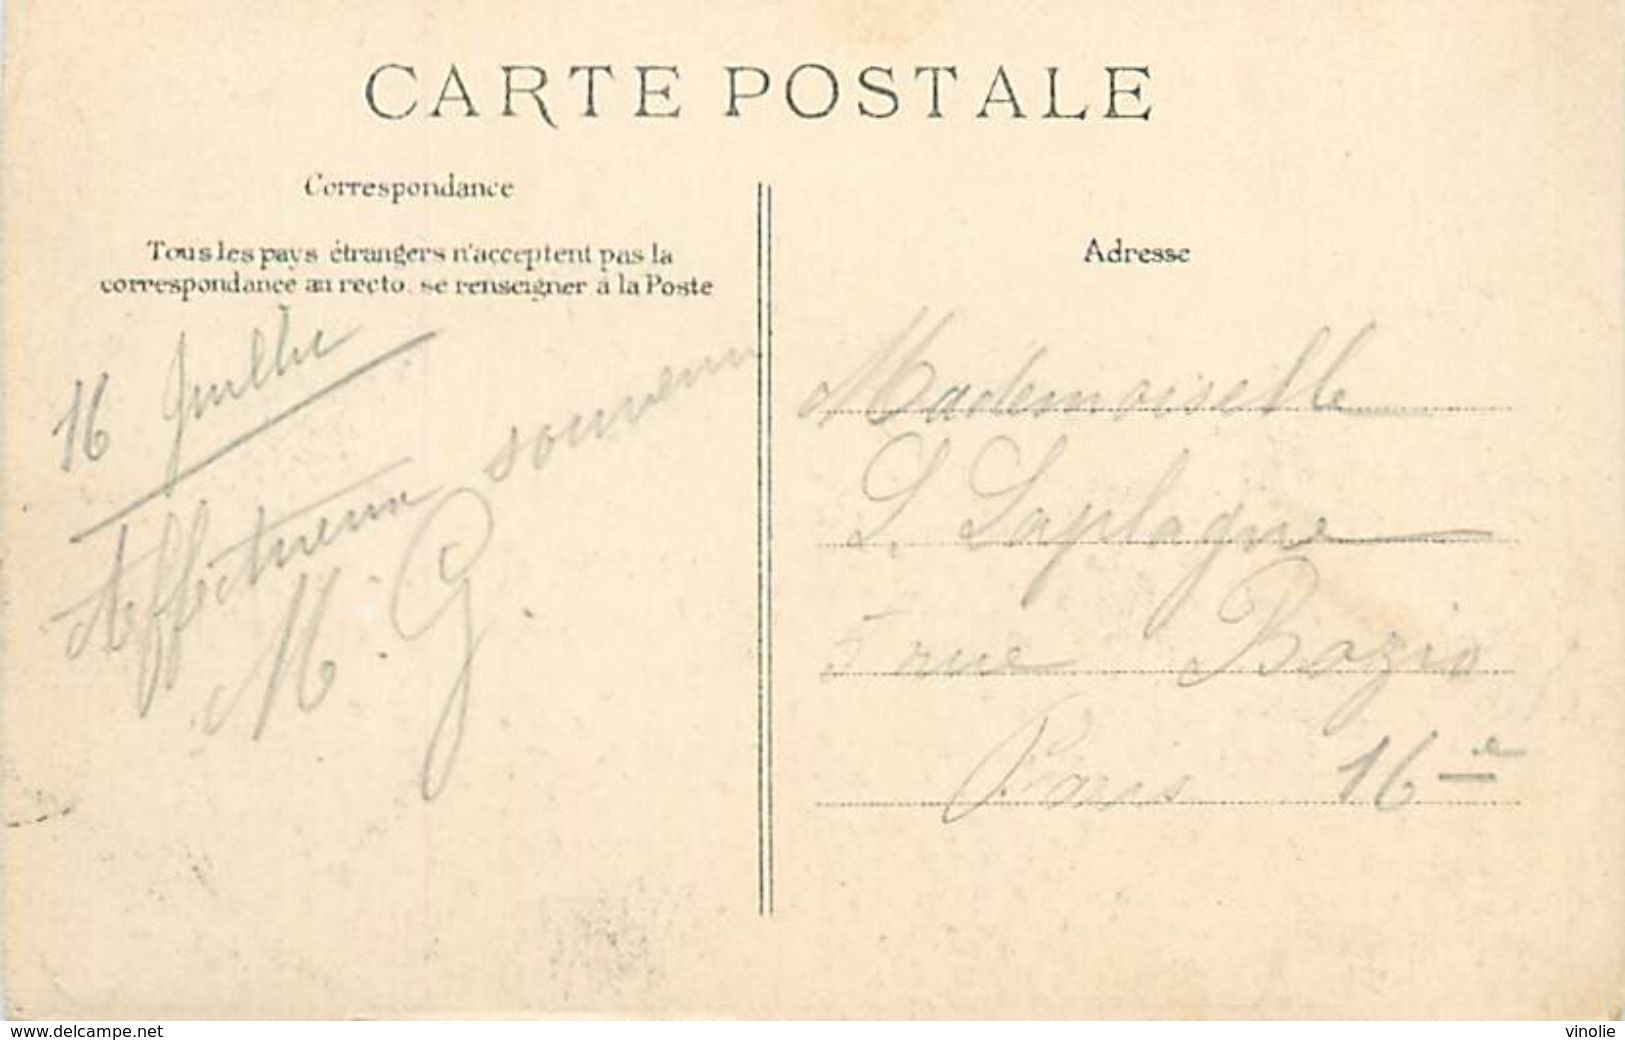 CARTE POSTALE
Correspondance
Tous les pays étrangers n'acceptent pas la
correspondance au recto, se renseigner à la Poste
16 Juillet
Affectueux souvenir
M. G.
Adresse
Mademoiselle
L. Laplagne
5 rue Bozio
Paris 16e
www.delcampe.net
vinolie